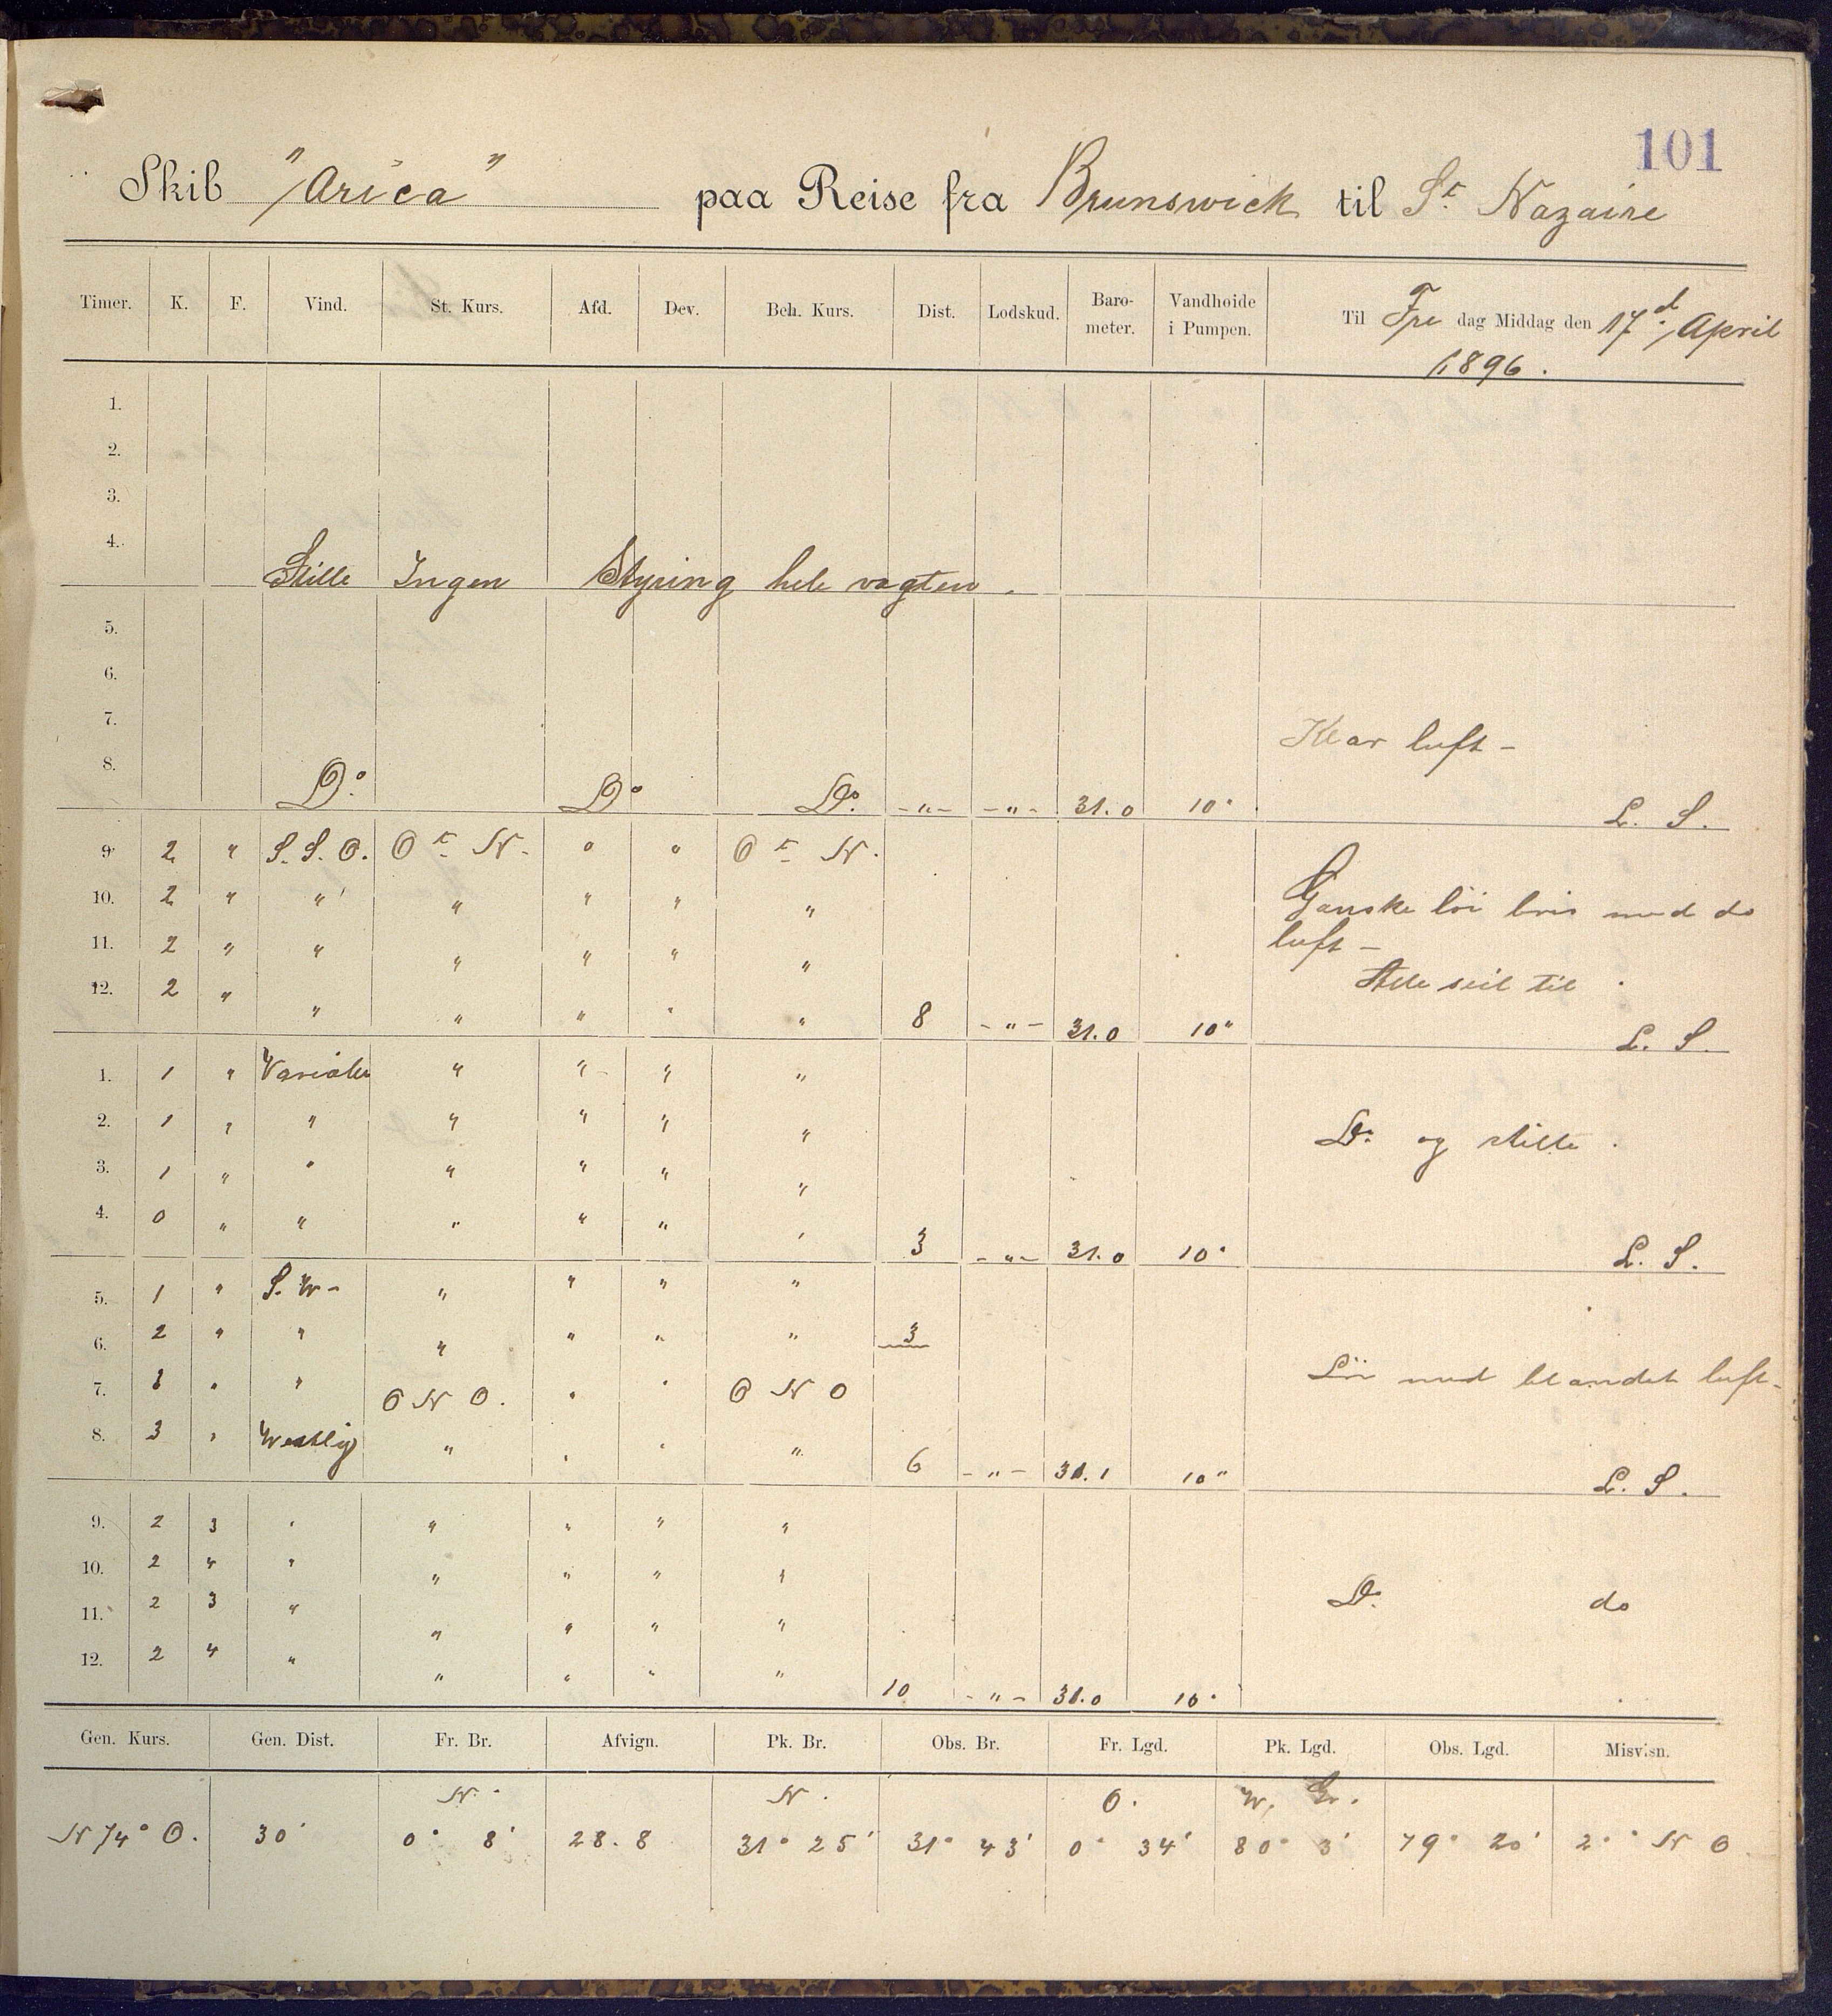 101
Skib "Arica" paa Reise fra Brunswick til St Nazaire
Timer. K. F. Vind. St. Kurs. Afd. Dev. Beh. Kurs. Dist. Lodskud. Baro-meter. Vandhoide i Pumpen. Til Fre dag Middag den 17d April
1896.
1.
2.
3.
4. Stille Ingen Styring hele vagten.
5.
6.
7. Klar luft -
8. Do Do Do - " - - " - 31.0 10"
L. S.
9. 2 " S. S. O. O t N. " " O t N.
10. 2 " " " " " " Ganske löi bris med do
11. 2 " " " " " " luft -
12. 2 " " " " " " 8 - " - 31.0 10" Alle seil til
L. S.
1. 1 " Variabel " " " "
2. 1 " " " " " " Do og stille.
3. 1 " " " " " "
4. 0 " " " " " " 3 - " - 31.0 10"
L. S.
5. 1 " S. W - " " " "
6. 2 " " " " " " 3
7. " " O N O. " " O N O Löi med blandet luft -
8. 3 " Westlig " " " " 6 - " - 31.1 10"
L. S.
9. 2 3 " " " " "
10. 2 4 " " " " " Do do
11. 2 3 " " " " "
12. 2 4 " " " " " 10 - " - 31.0 10"
Gen. Kurs. Gen. Dist. Fr. Br. Afvign. Pk. Br. Obs. Br. Fr. Lgd. Pk. Lgd. Obs. Lgd. Misvisn.
N. N. O. W. Gr.
N 74° O. 30' 0° 8' 28.8 31° 25' 31° 43' 0° 34' 80° 3' 79° 20' 2° N O